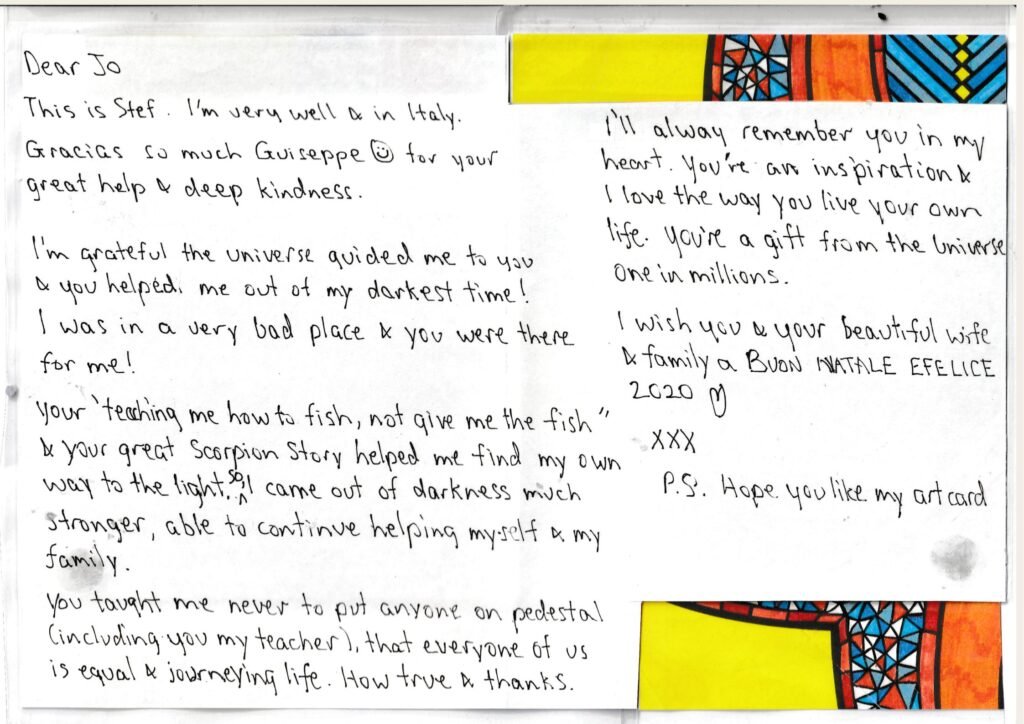 Dear Jo
This is Stef. I'm very well & in Italy.
Gracias so much Guiseppe ☺ for your
great help & deep kindness.
I'm grateful the universe guided me to you
& you helped. me out of my darkest time!
I was in a very bad place & you were there
for me!
Your "teaching me how to fish, not give me the fish"
& your great Scorpion Story helped me find my own
way to the light. so I came out of darkness much
stronger, able to continue helping myself & my
family.
You taught me never to put anyone on pedestal
(including you my teacher), that everyone of us
is equal & journeying life. How true & thanks.
I'll alway remember you in my
heart. You're an inspiration &
I love the way you live your own
life. You're a gift from the Universe
One in millions.
I wish you & your beautiful wife
& family a BUON NATALE EFELICE
2020 ♡
XXX
P.S. Hope you like my art card